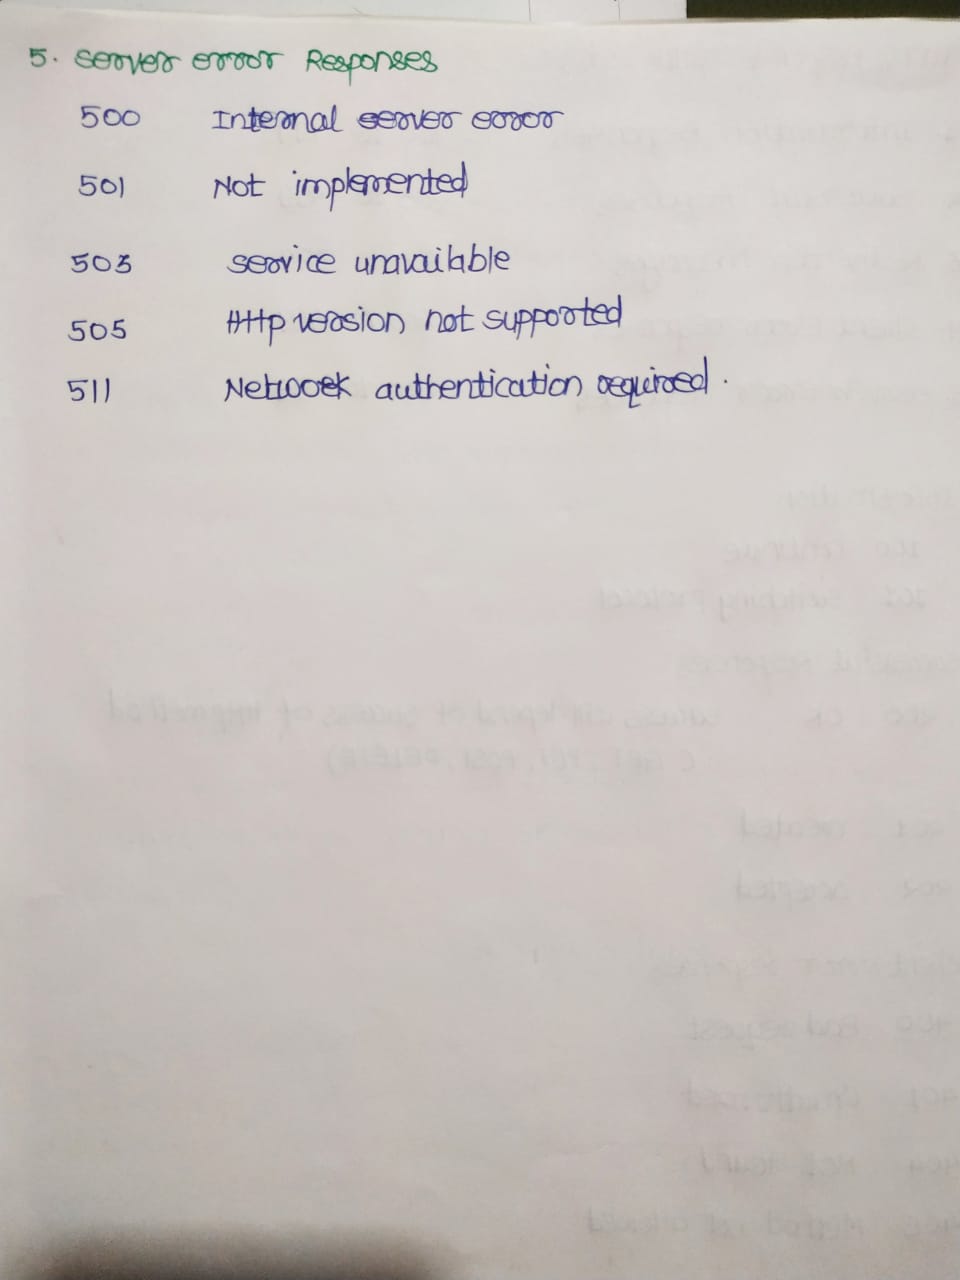 5. Server error Responses
500 Internal server error
501 Not implemented
503 service unavailable
505 Http version not supported
511 Network authentication required.